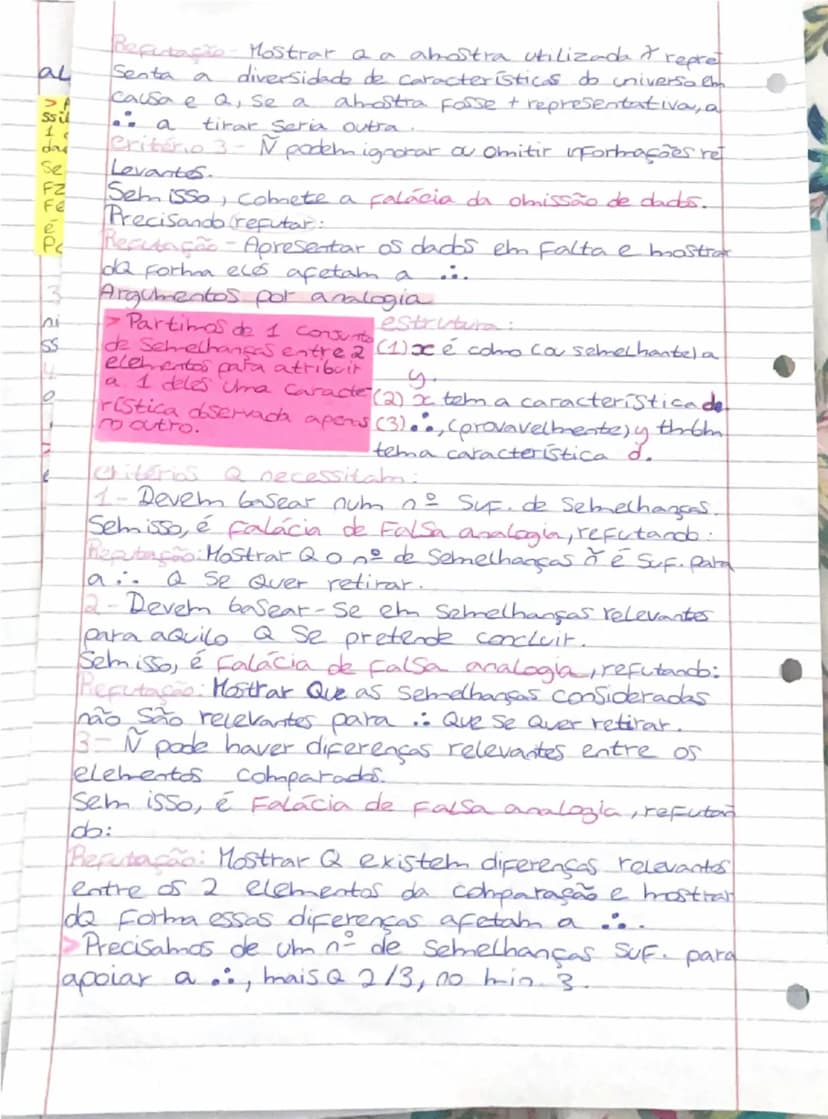 Refutação - Mostrar Q a amostra utilizada ñ repre
senta a diversidade de características do universo em
causa e Q, se a amostra fosse + representativa, a
∴ a tirar seria outra.
Critério 3 - Ñ podem ignorar ou omitir informações re
levantes.
Sem isso, comete a falácia da omissão de dados.
Precisando refutar:
Refutação - Apresentar os dados em falta e mostrar
dQ forma eles afetam a ∴.
Argumentos por analogia
> Partimos de 1 conjunto
de semelhanças entre 2
elementos para atribuir
a 1 deles uma caracte
rística observada apenas
no outro.
estrutura:
(1) x é como (ou semelhante) a
y.
(2) x tem a característica d.
(3) ∴, (provavelmente) y tmbm
tem a característica d.
Critérios Q necessitam:
1 - Devem basear num nº suf. de semelhanças.
Sem isso, é falácia de Falsa analogia, refutando:
Refutação: Mostrar Q o nº de semelhanças ñ é suf. para
a ∴ Q se quer retirar.
2 - Devem basear-se em semelhanças relevantes
para aquilo Q se pretende concluir.
Sem isso, é falácia de falsa analogia, refutando:
Refutação: Mostrar Que as semelhanças consideradas
não são relevantes para ∴ Que se quer retirar.
3 - Ñ pode haver diferenças relevantes entre os
elementos comparados.
Sem isso, é Falácia de Falsa analogia, refutan
do:
Refutação: Mostrar Q existem diferenças relevantes
entre os 2 elementos da comparação e mostrar
dQ forma essas diferenças afetam a ∴.
> Precisamos de um nº de semelhanças suf. para
apoiar a ∴, mais Q 2/3, no min. 3.